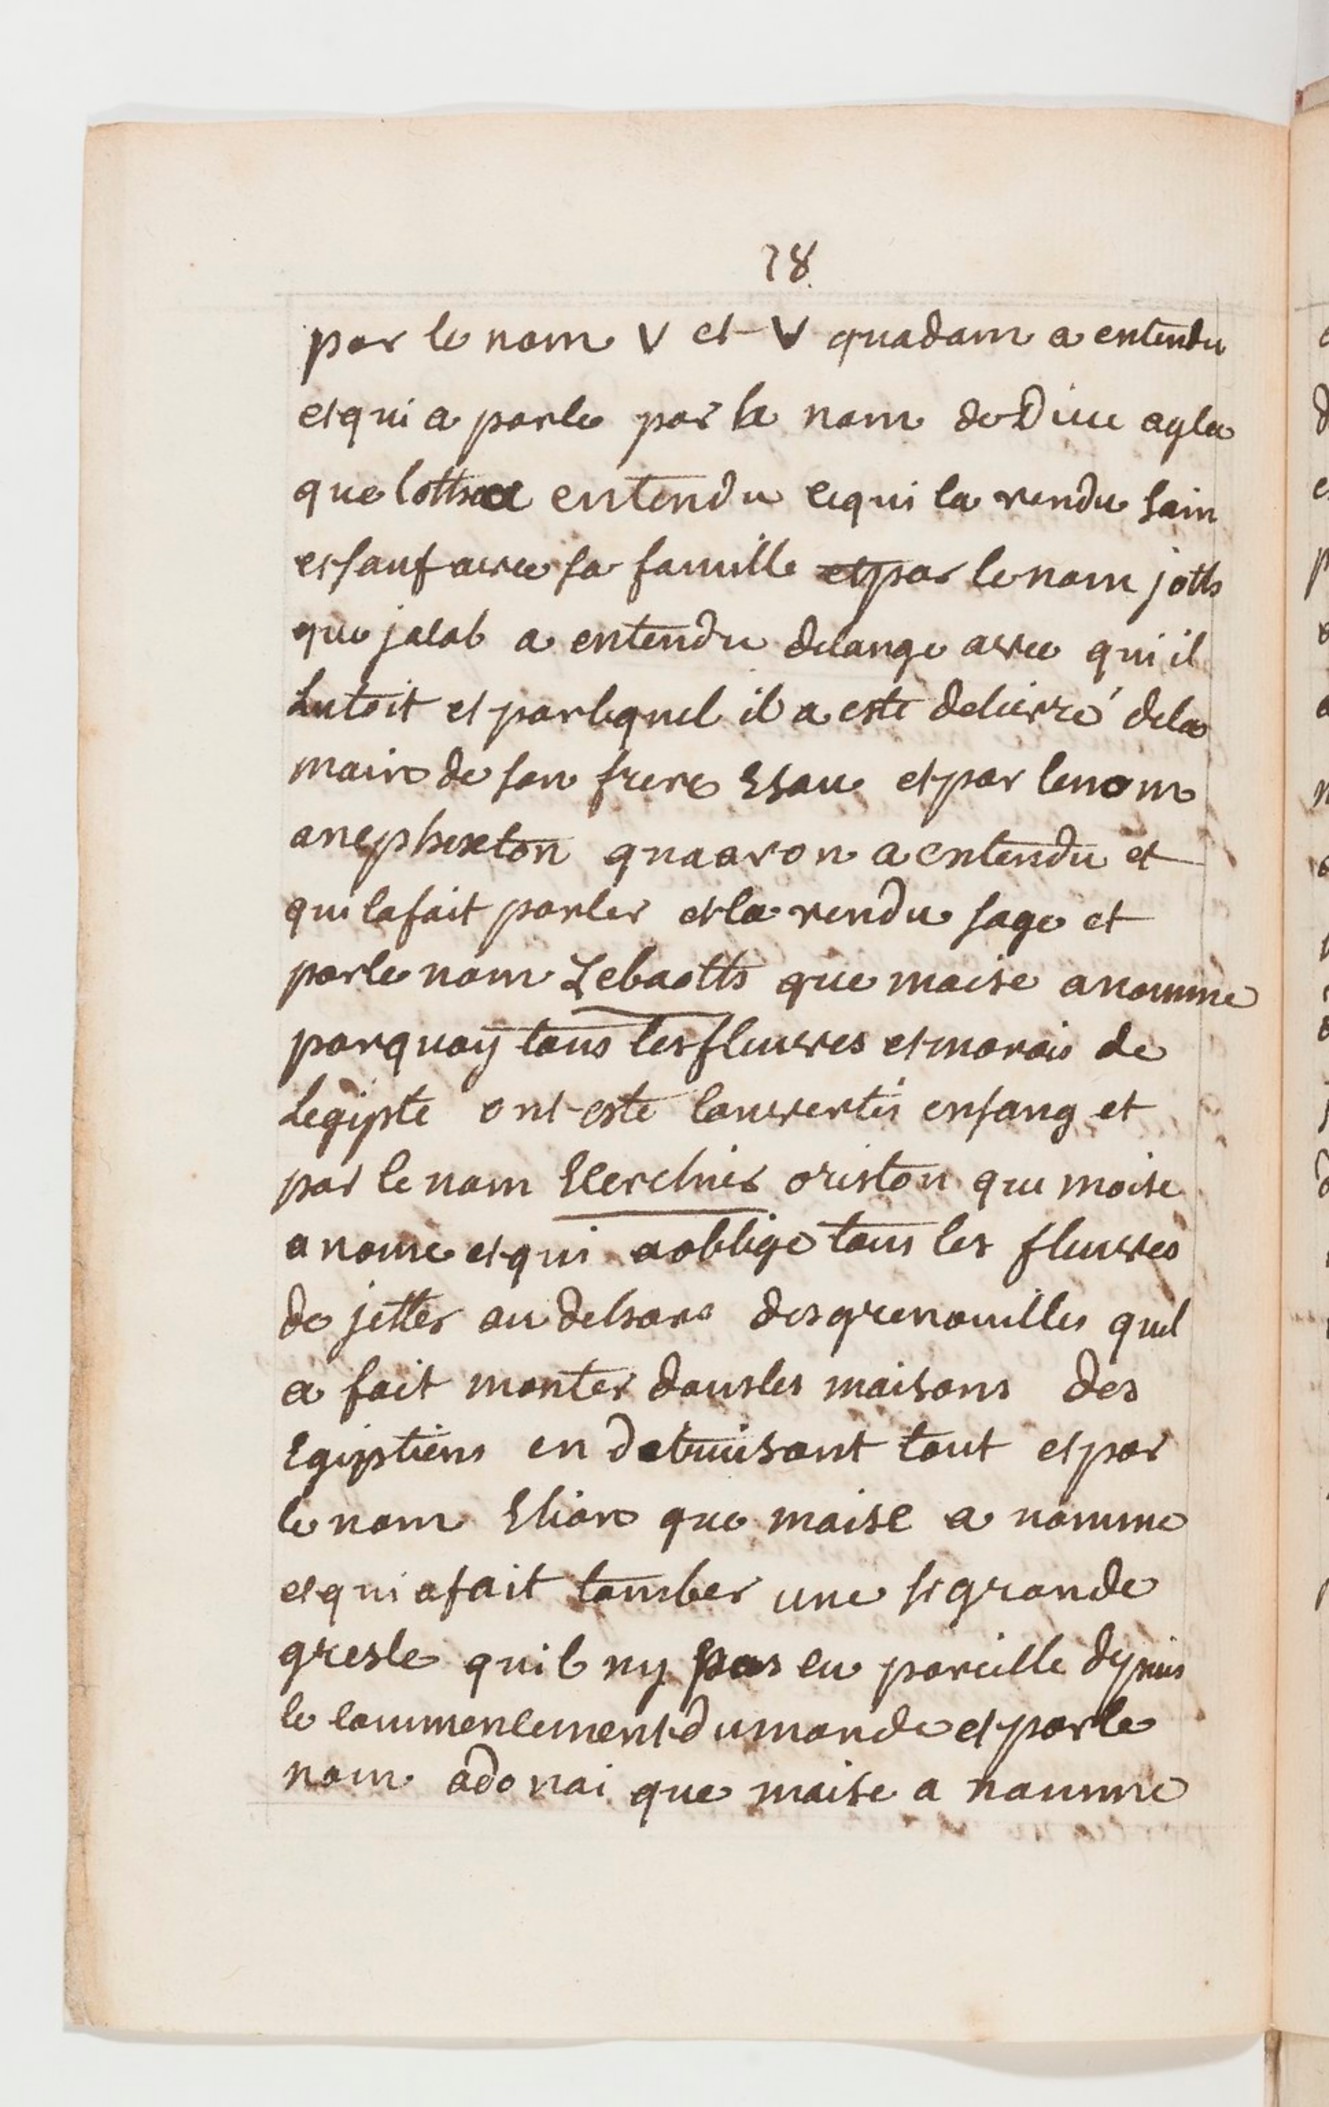 28
par le nom V et V quadam a entendu
et qui a parle par le nom de Dieu agla
que loth a entendu et qui la rendu sain
et sauf avec sa famille et par le nom joth
que jacob a entendu delange avec qui il
Lutoit et par lequel il a este delivré dela
main de son frere Esau et par le nom
anephexeton quaaron a entendu et
qui lafait parler et la rendu sage et
par le nom Zebaoth que moise a nomme
par quoy tous les fleuves et marais de
Legipte ont este convertis en sang et
par le nom Elerchies oriston que moise
a nome et qui a oblige tous les fleuves
de jetter au dehors des grenouilles quil
a fait monter dans les maisons des
Egiptiens en detruisant tout et par
le nom Elion que moise a nomme
et qui a fait tomber une si grande
gresle quil ny pas eu pareille depuis
le commencement du monde et par le
nom adonai que moise a nomme